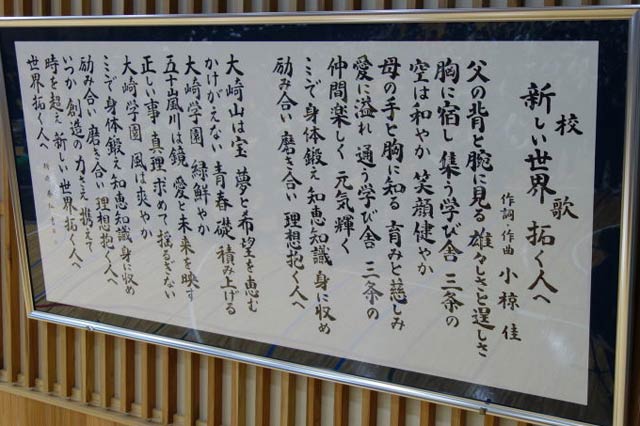 校歌
新しい世界拓く人へ
作詞・作曲 小椋佳
父の背と腕に見る 雄々しさと逞しさ
胸に宿し 集う学び舎 三条の
空は和やか 笑顔健やか
母の手と胸に知る 育みと慈しみ
愛に溢れ 通う学び舎 三条の
仲間楽しく 元気輝く
ここで身体鍛え 知恵知識身に収め
励み合い 磨き合い 理想抱く人へ
大崎山は宝 夢と希望を恵む
かけがえない 青春の礎 積み上げる
大崎学園 緑鮮やか
五十嵐川は鏡 愛と未来を映す
正しい事 真理求めて 揺るぎない
大崎学園 風は爽やか
ここで身体鍛え 知恵知識身に収め
励み合い 磨き合い 理想抱く人へ
いつか 創造の力さえ携えて
時を超え 新しい世界拓く人へ
世界拓く人へ